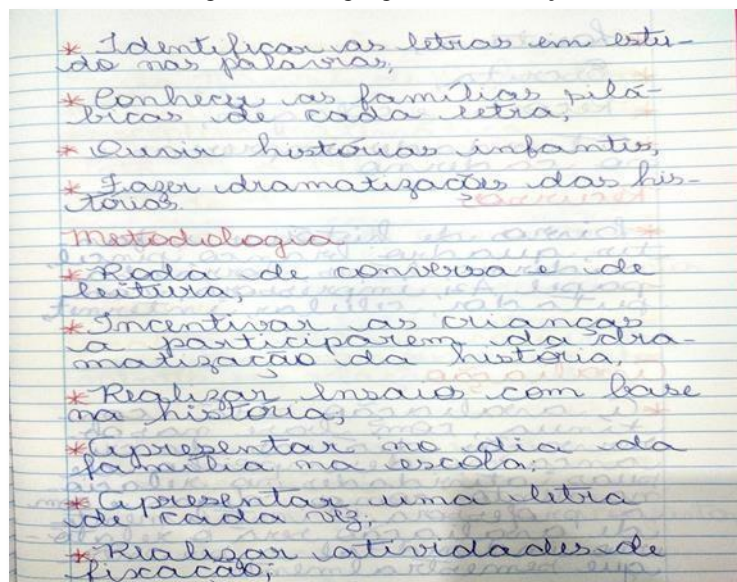 * Identificar as letras em estu-
do nas palavras;
* Conhecer as famílias silá-
bicas de cada letra;
* Ouvir histórias infantis;
* Fazer dramatizações das his-
tórias.
Metodologia
* Roda de conversa e de
leitura;
* Incentivar as crianças
a participarem da dra-
matização da história.
* Realizar ensaios com base
na história;
* Apresentar no dia da
família na escola;
* Apresentar uma letra
de cada vez;
* Realizar atividades de
fixação;